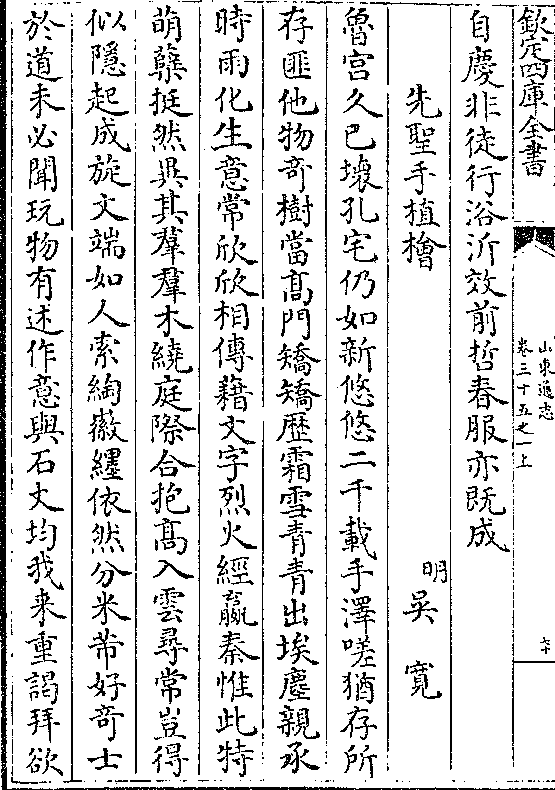 欽定四庫全書
山東通志
卷三十五之一上
六十
自慶非徒行浴沂效前哲春服亦既成
先聖手植檜
明吳寛
魯宫久已壊孔宅仍如新悠悠二千載手澤嗟猶存所
存匪他物竒樹當髙門矯矯歴霜雪青青出埃塵親承
時雨化生意常欣欣相傳藉文字烈火經嬴秦惟此特
萌蘖挺然異其羣羣木繞庭際合抱髙入雲尋常豈得
似隱起成旋文端如人索綯徽纆依然分米芾好竒士
於道未必聞玩物有述作意與石丈均我来重謁拜欲